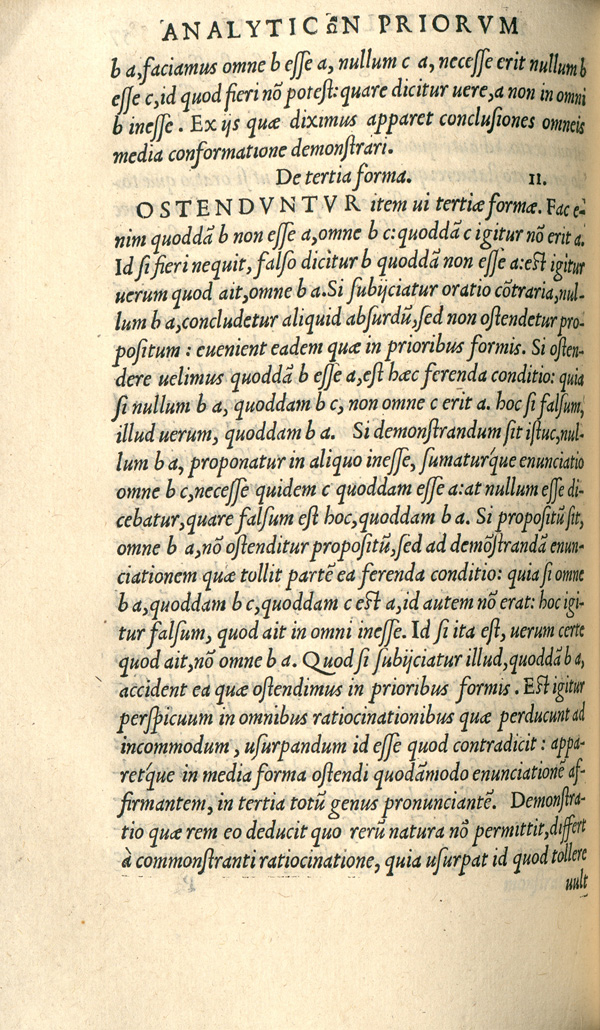 ANALYTICῶN PRIORVM
b a,faciamus omne b esse a, nullum c a, necesse erit nullum b
esse c, id quod fieri nõ potest: quare dicitur uere, a non in omni
b inesse. Ex ijs quæ diximus apparet conclusiones omneis
media conformatione demonstrari.
De tertia forma. 11.
OSTENDVNTVR item ui tertiæ formæ. Fac e-
nim quoddã b non esse a, omne b c: quoddã c igitur nõ erit a.
Id si fieri nequit, falso dicitur b quoddã non esse a: est igitur
uerum quod ait, omne b a. Si subijciatur oratio cõtraria, nul-
lum b a, concludetur aliquid absurdũ, sed non ostendetur pro-
positum: euenient eadem quæ in prioribus formis. Si osten-
dere uelimus quoddã b esse a, est hæc ferenda conditio: quia
si nullum b a, quoddam b c, non omne c erit a. hoc si falsum,
illud uerum, quoddam b a. Si demonstrandum sit istuc, nul-
lum b a, proponatur in aliquo inesse, sumatur'que enunciatio
omne b c, necesse quidem c quoddam esse a: at nullum esse di-
cebatur, quare falsum est hoc, quoddam b a. Si propositũ sit,
omne b a, nõ ostenditur propositũ, sed ad demõstrandã enun-
ciationem quæ tollit partẽ ea ferenda conditio: quia si omne
b a, quoddam b c, quoddam c est a, id autem nõ erat: hoc igi-
tur falsum, quod ait in omni inesse. Id si ita est, uerum certe
quod ait, nõ omne b a. Quod si subijciatur illud, quoddã b a,
accident ea quæ ostendimus in prioribus formis. Est igitur
perspicuum in omnibus ratiocinationibus quæ perducunt ad
incommodum, usurpandum id esse quod contradicit: appa-
ret'que in media forma ostendi quodãmodo enunciationẽ af-
firmantem, in tertia totũ genus pronunciantẽ. Demonstra-
tio quæ rem eo deducit quo rerũ natura nõ permittit, differt
à commonstranti ratiocinatione, quia usurpat id quod tollere
uult